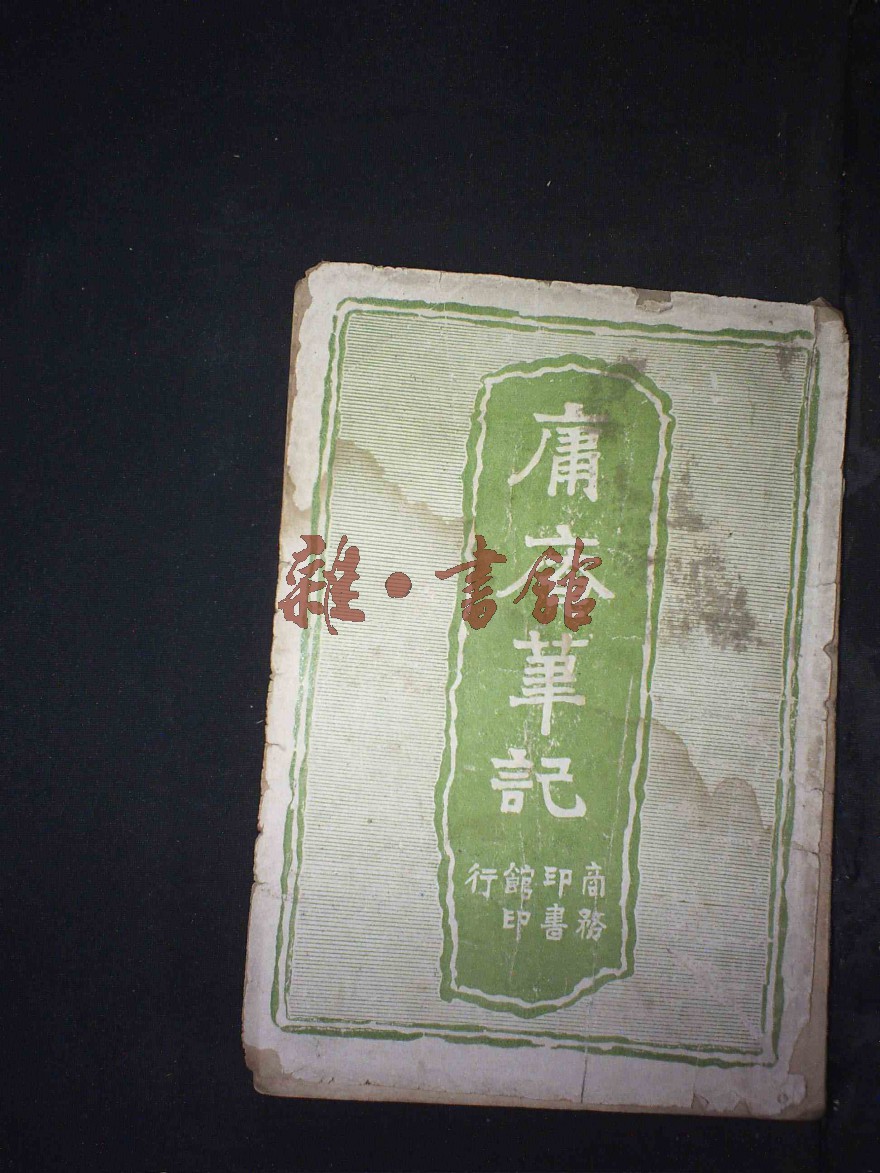 庸斎筆記
商務
印書
館印
行
雜·書館